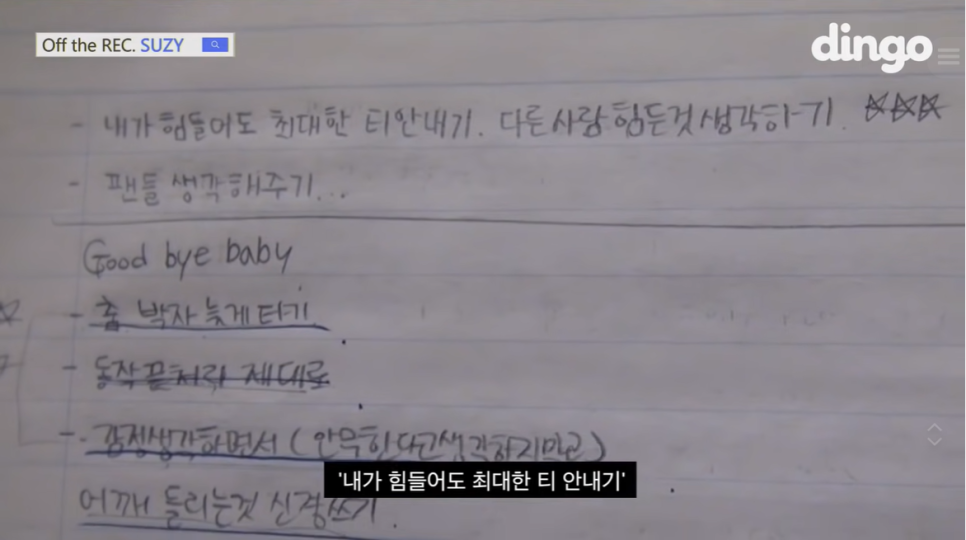 Off the REC. SUZY
dingo
- 내가 힘들어도 최대한 티안내기. 다른사람 힘든것 생각하기. ☆☆☆
- 팬들 생각해주기...
Good bye baby
- 춤 박자 늦게타기
- 동작끝처리 제대로
- 감정생각하면서 (안무한다고생각하지말고)
'내가 힘들어도 최대한 티 안내기'
어깨 돌리는것 신경쓰기.